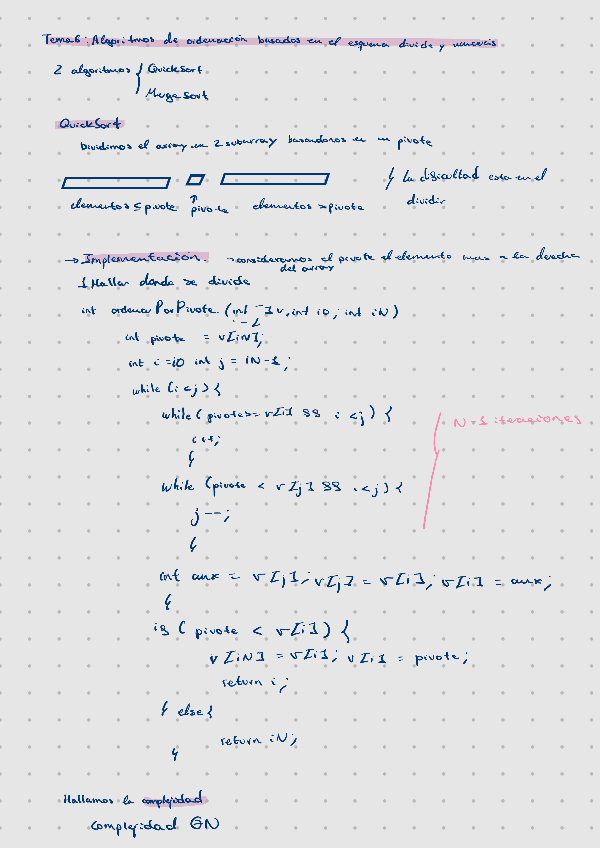 Tema 6: Algoritmos de ordenación basados en el esquema divide y vencerás
2 algoritmos { QuickSort
MergeSort
QuickSort
Dividimos el array en 2 subarray basandonos en un pivote
elementos ≤ pivote ↑ pivote elementos > pivote
La dificultad esta en el
dividir
→ Implementación. → consideramos el pivote el elemento mas a la derecha
del array
1 Hallar donde se divide
int ordenarPorPivote (int [] v, int i0, int iN)
{
int pivote = v[iN];
int i = i0 int j = iN-1;
while (i<j) {
while (pivote >= v[i] && i<j) {
i++;
}
while (pivote < v[j] && i<j) {
j--;
}
N-1 iteraciones
int aux = v[j]; v[j] = v[i]; v[i] = aux;
}
if (pivote < v[i]) {
v[iN] = v[i]; v[i] = pivote;
return i;
} else {
return iN;
}
Hallamos la complejidad
complejidad ΘN